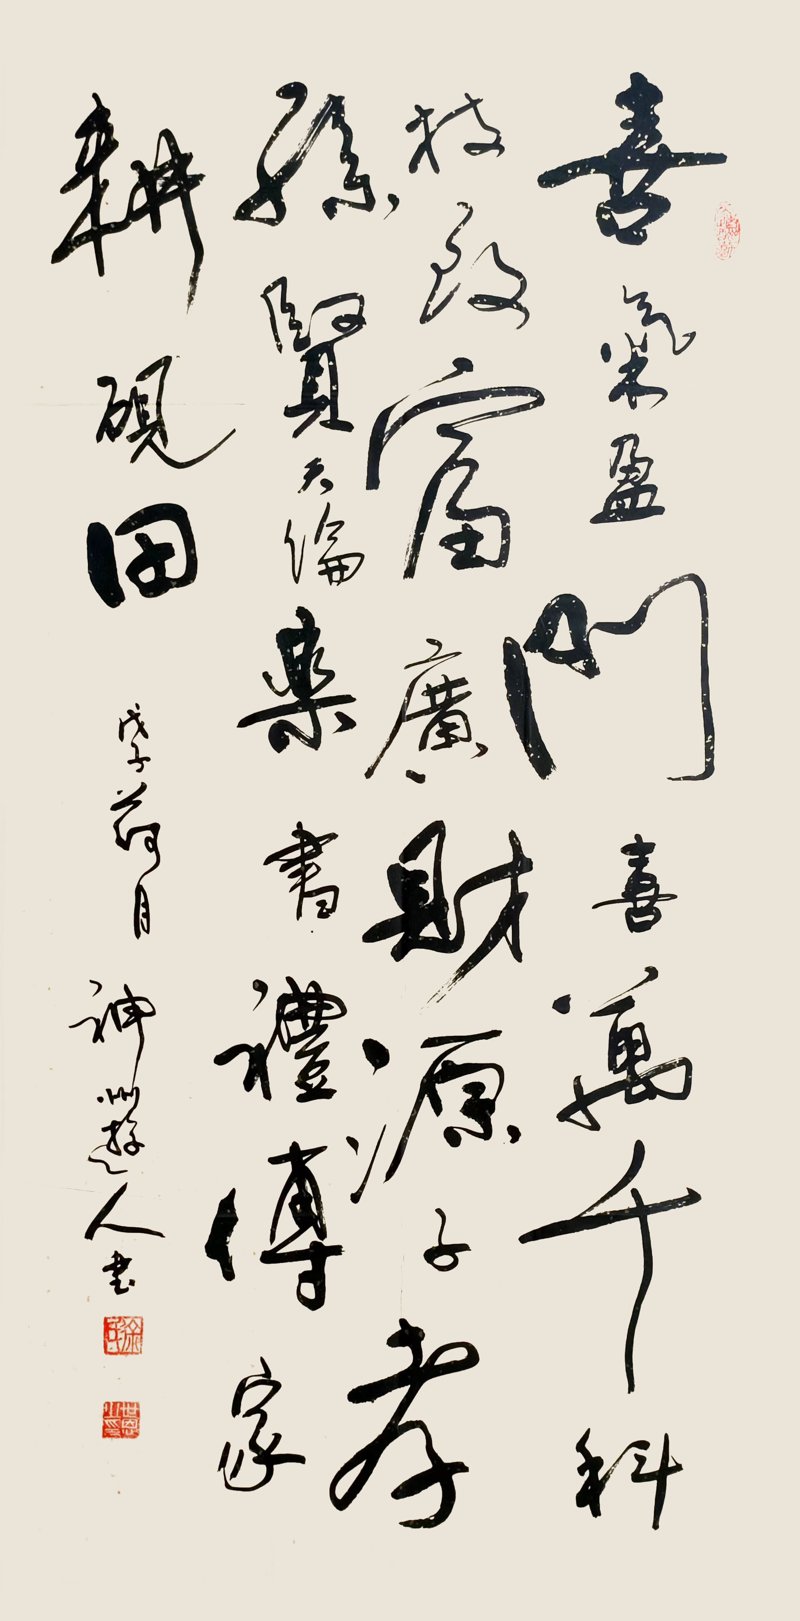 喜氣盈門喜萬千科
技致富廣財源子孝
孫賢天倫樂書禮傳家
耕硯田
戊子荷月神州遊人書